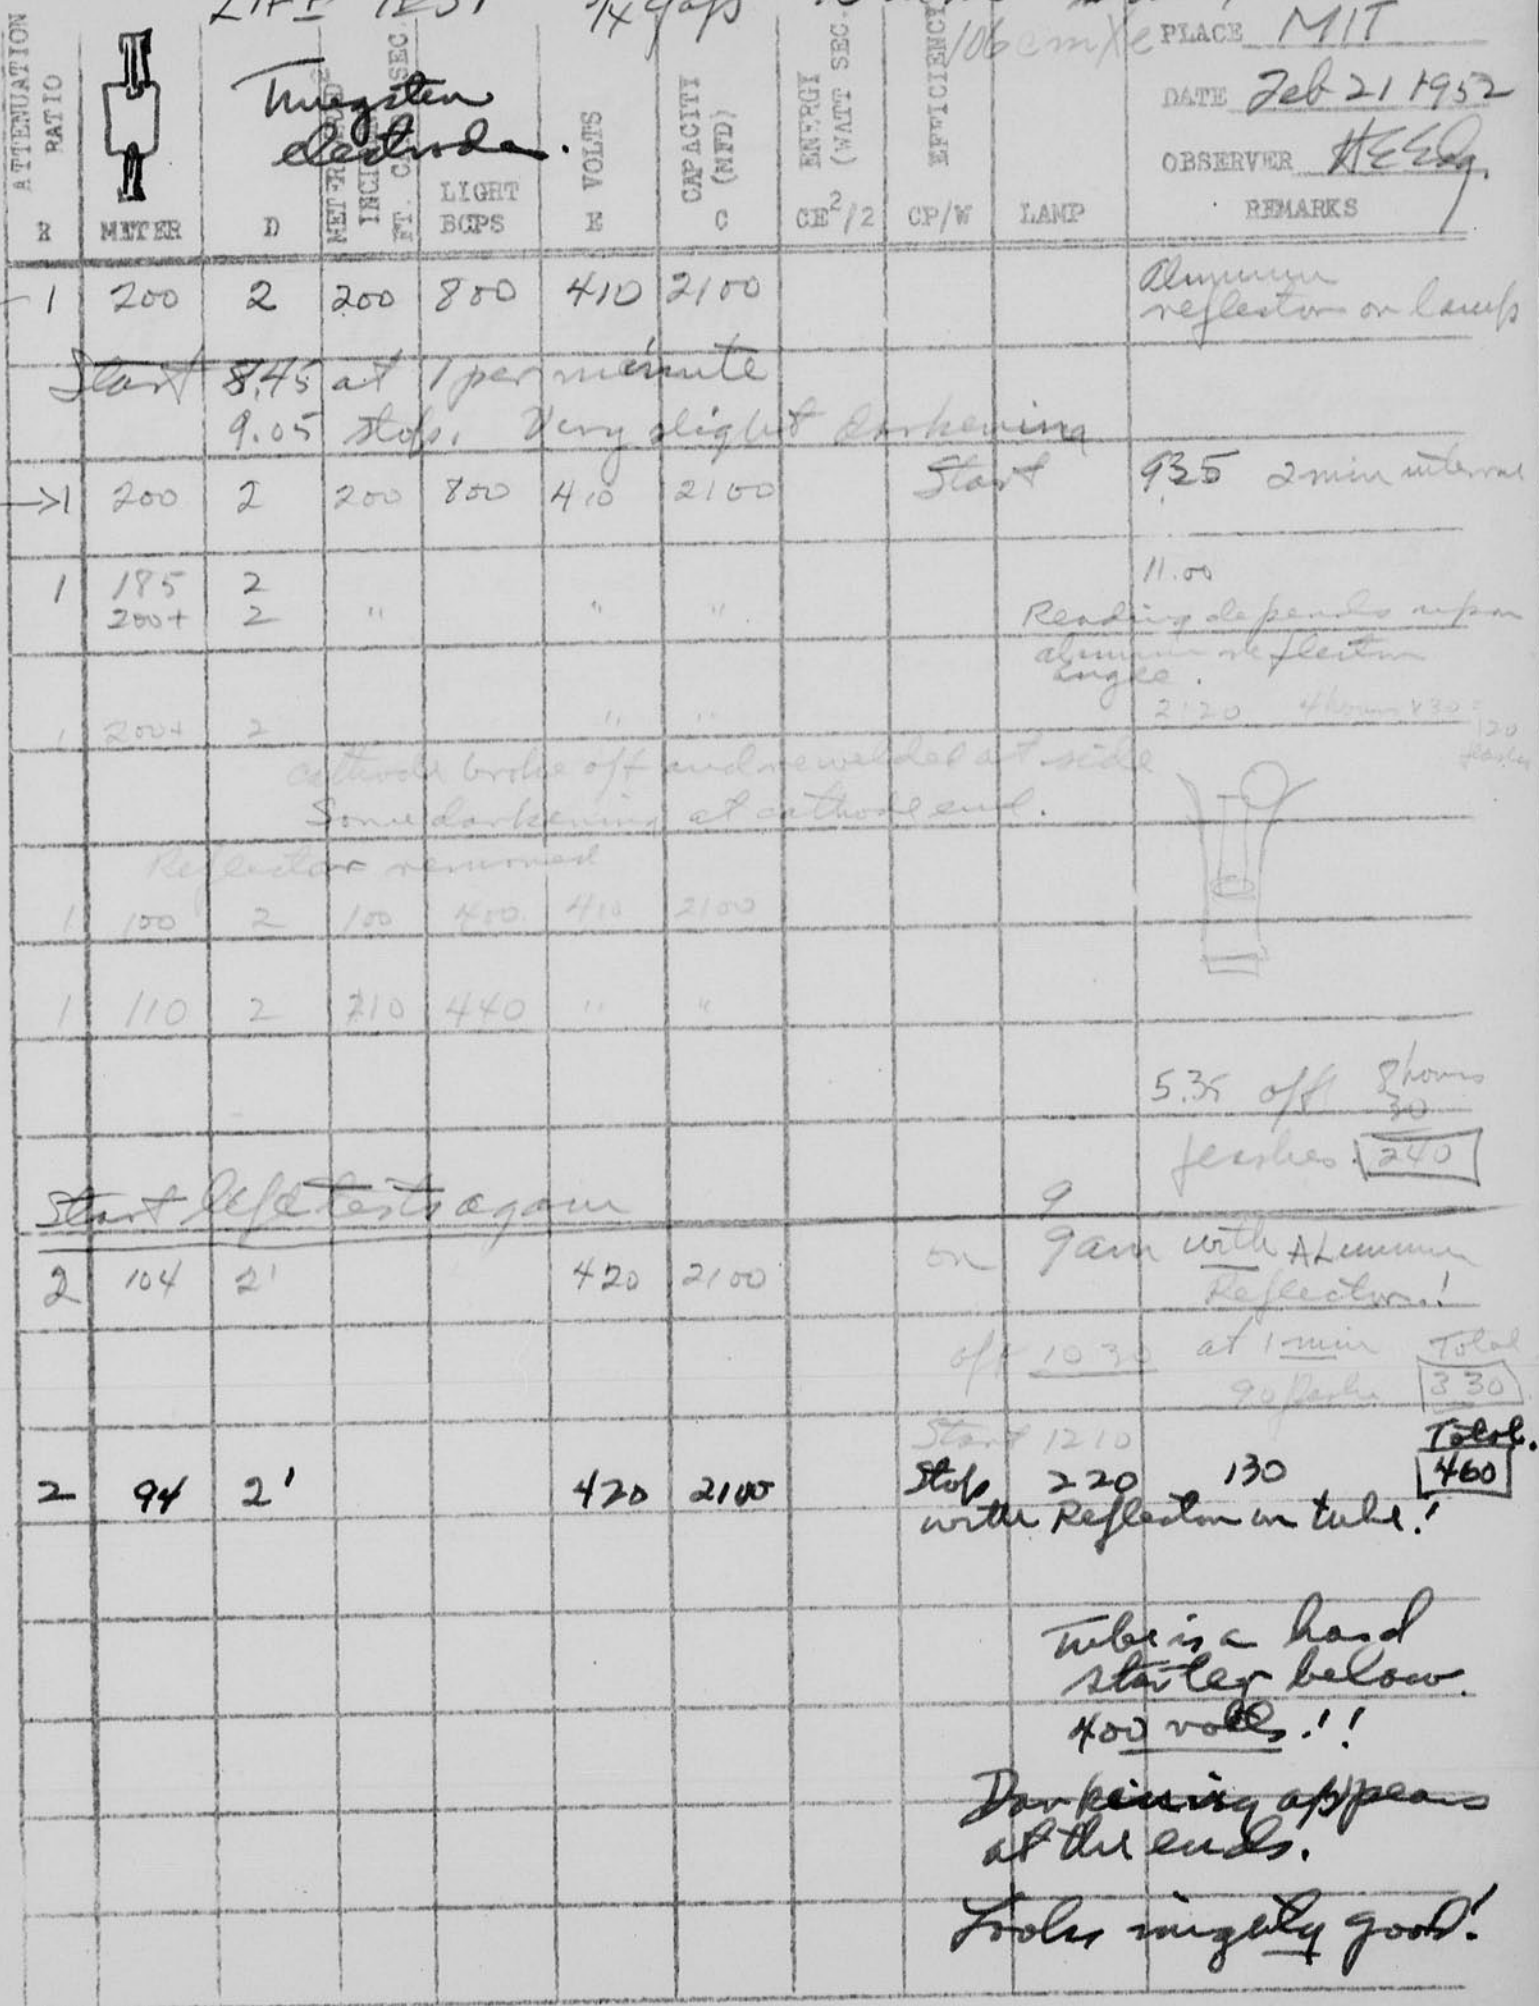 LIFE TEST
106 cm Xe PLACE MIT
Tungsten
electrodes.
DATE Feb 21 1952
OBSERVER HEEdg.
ATTENUATION RATIO
R METER D LIGHT BCPS VOLTS E CAPACITY (MFD) C ENERGY (WATT SEC. CE²/2 EFFICIENCY CP/W LAMP REMARKS
1 200 2 200 800 410 2100 Aluminum
reflector on lamp
Start 8.45 at 1 per minute
9.05 stops. Very slight darkening
→1 200 2 200 800 410 2100 Start 9.35 2 min interval
1 185 2 11.00
200+ 2 " " " Reading depends upon
aluminum reflector
angle.
1 200+ 2 " " 2:20 4 hours x 30 =
120
flashes
cathode broke off and rewelded at side
Some darkening at cathode end.
Reflector removed
1 100 2 100 400 410 2100
1 110 2 110 440 " "
5.35 off 8 hours
30
flashes. 240
Start life tests again
9
on 9 am with Aluminum
2 104 2' 420 2100
Reflector.!
off 10 30 at 1 min Total
90 flashes 330
Start 1210 Total.
2 94 2' 420 2100 Stop 220 130 460
with Reflector on tube.!
Tube is a hard
starter below
400 volts.!!
Darkening appears
at the ends.
Looks mighty good!